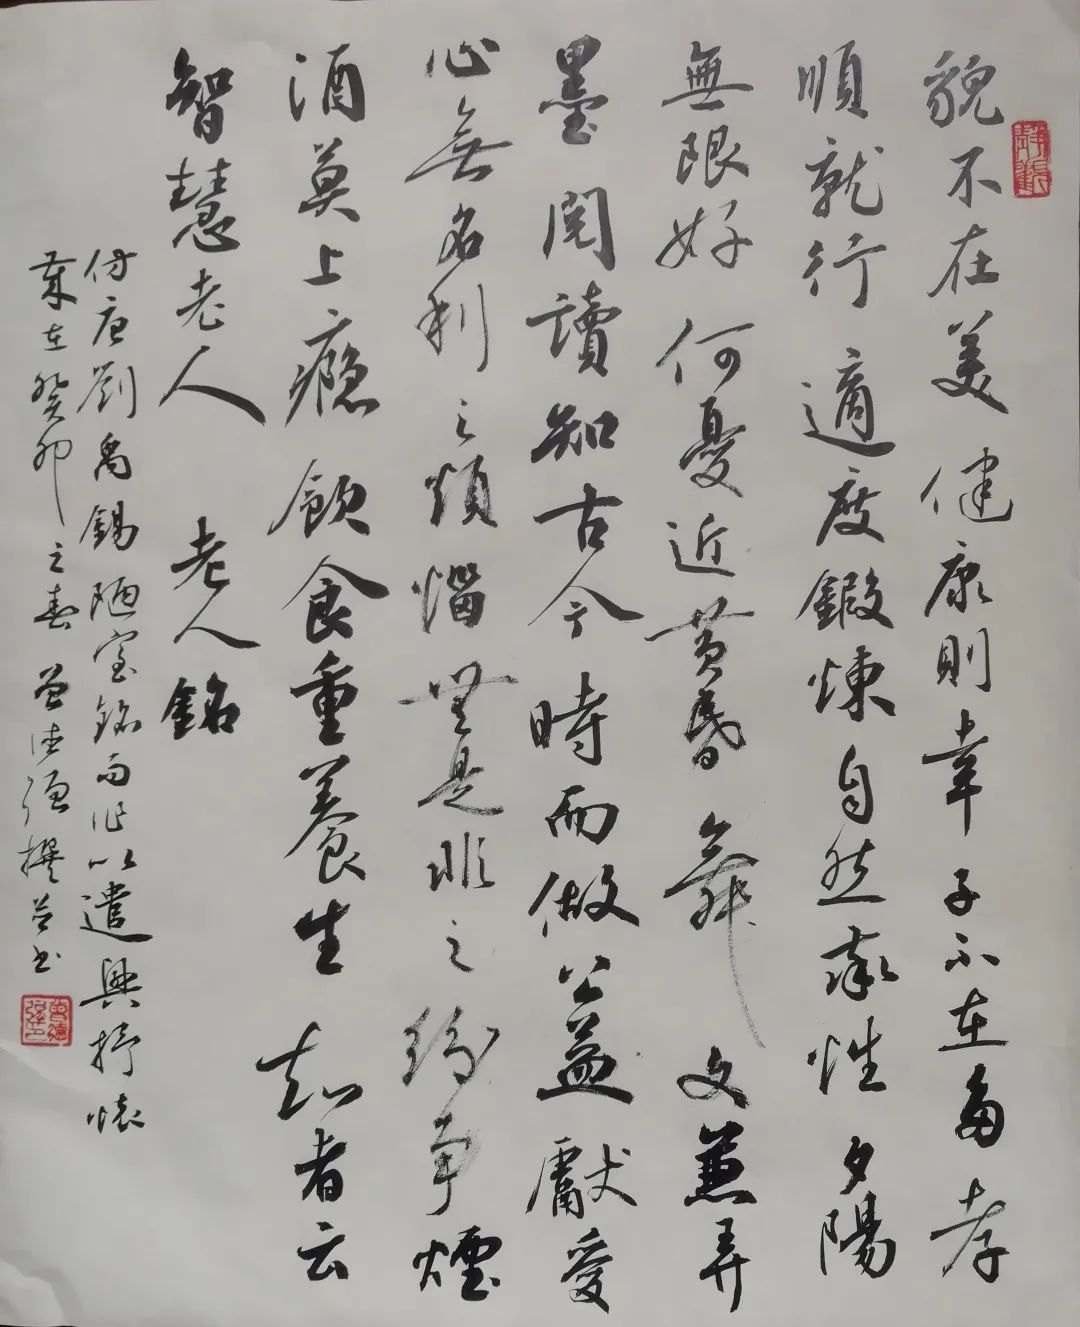 貌不在美健康則幸子不在多孝
順就行適度鍛煉自然率性夕陽
無限好何憂近黄昏舞文兼弄
墨閱讀知古今時而做公益獻愛
心無名利之煩惱無是非之紛爭煙
酒莫上癮飲食重養生知者云
智慧老人 老人銘
仿唐劉禹錫陋室銘而作以遣興抒懷
歲在癸卯之春曾德强撰并书
曾德强印